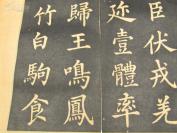 臣伏戎羌
迩壹體率
歸王鳴鳳
竹白駒食